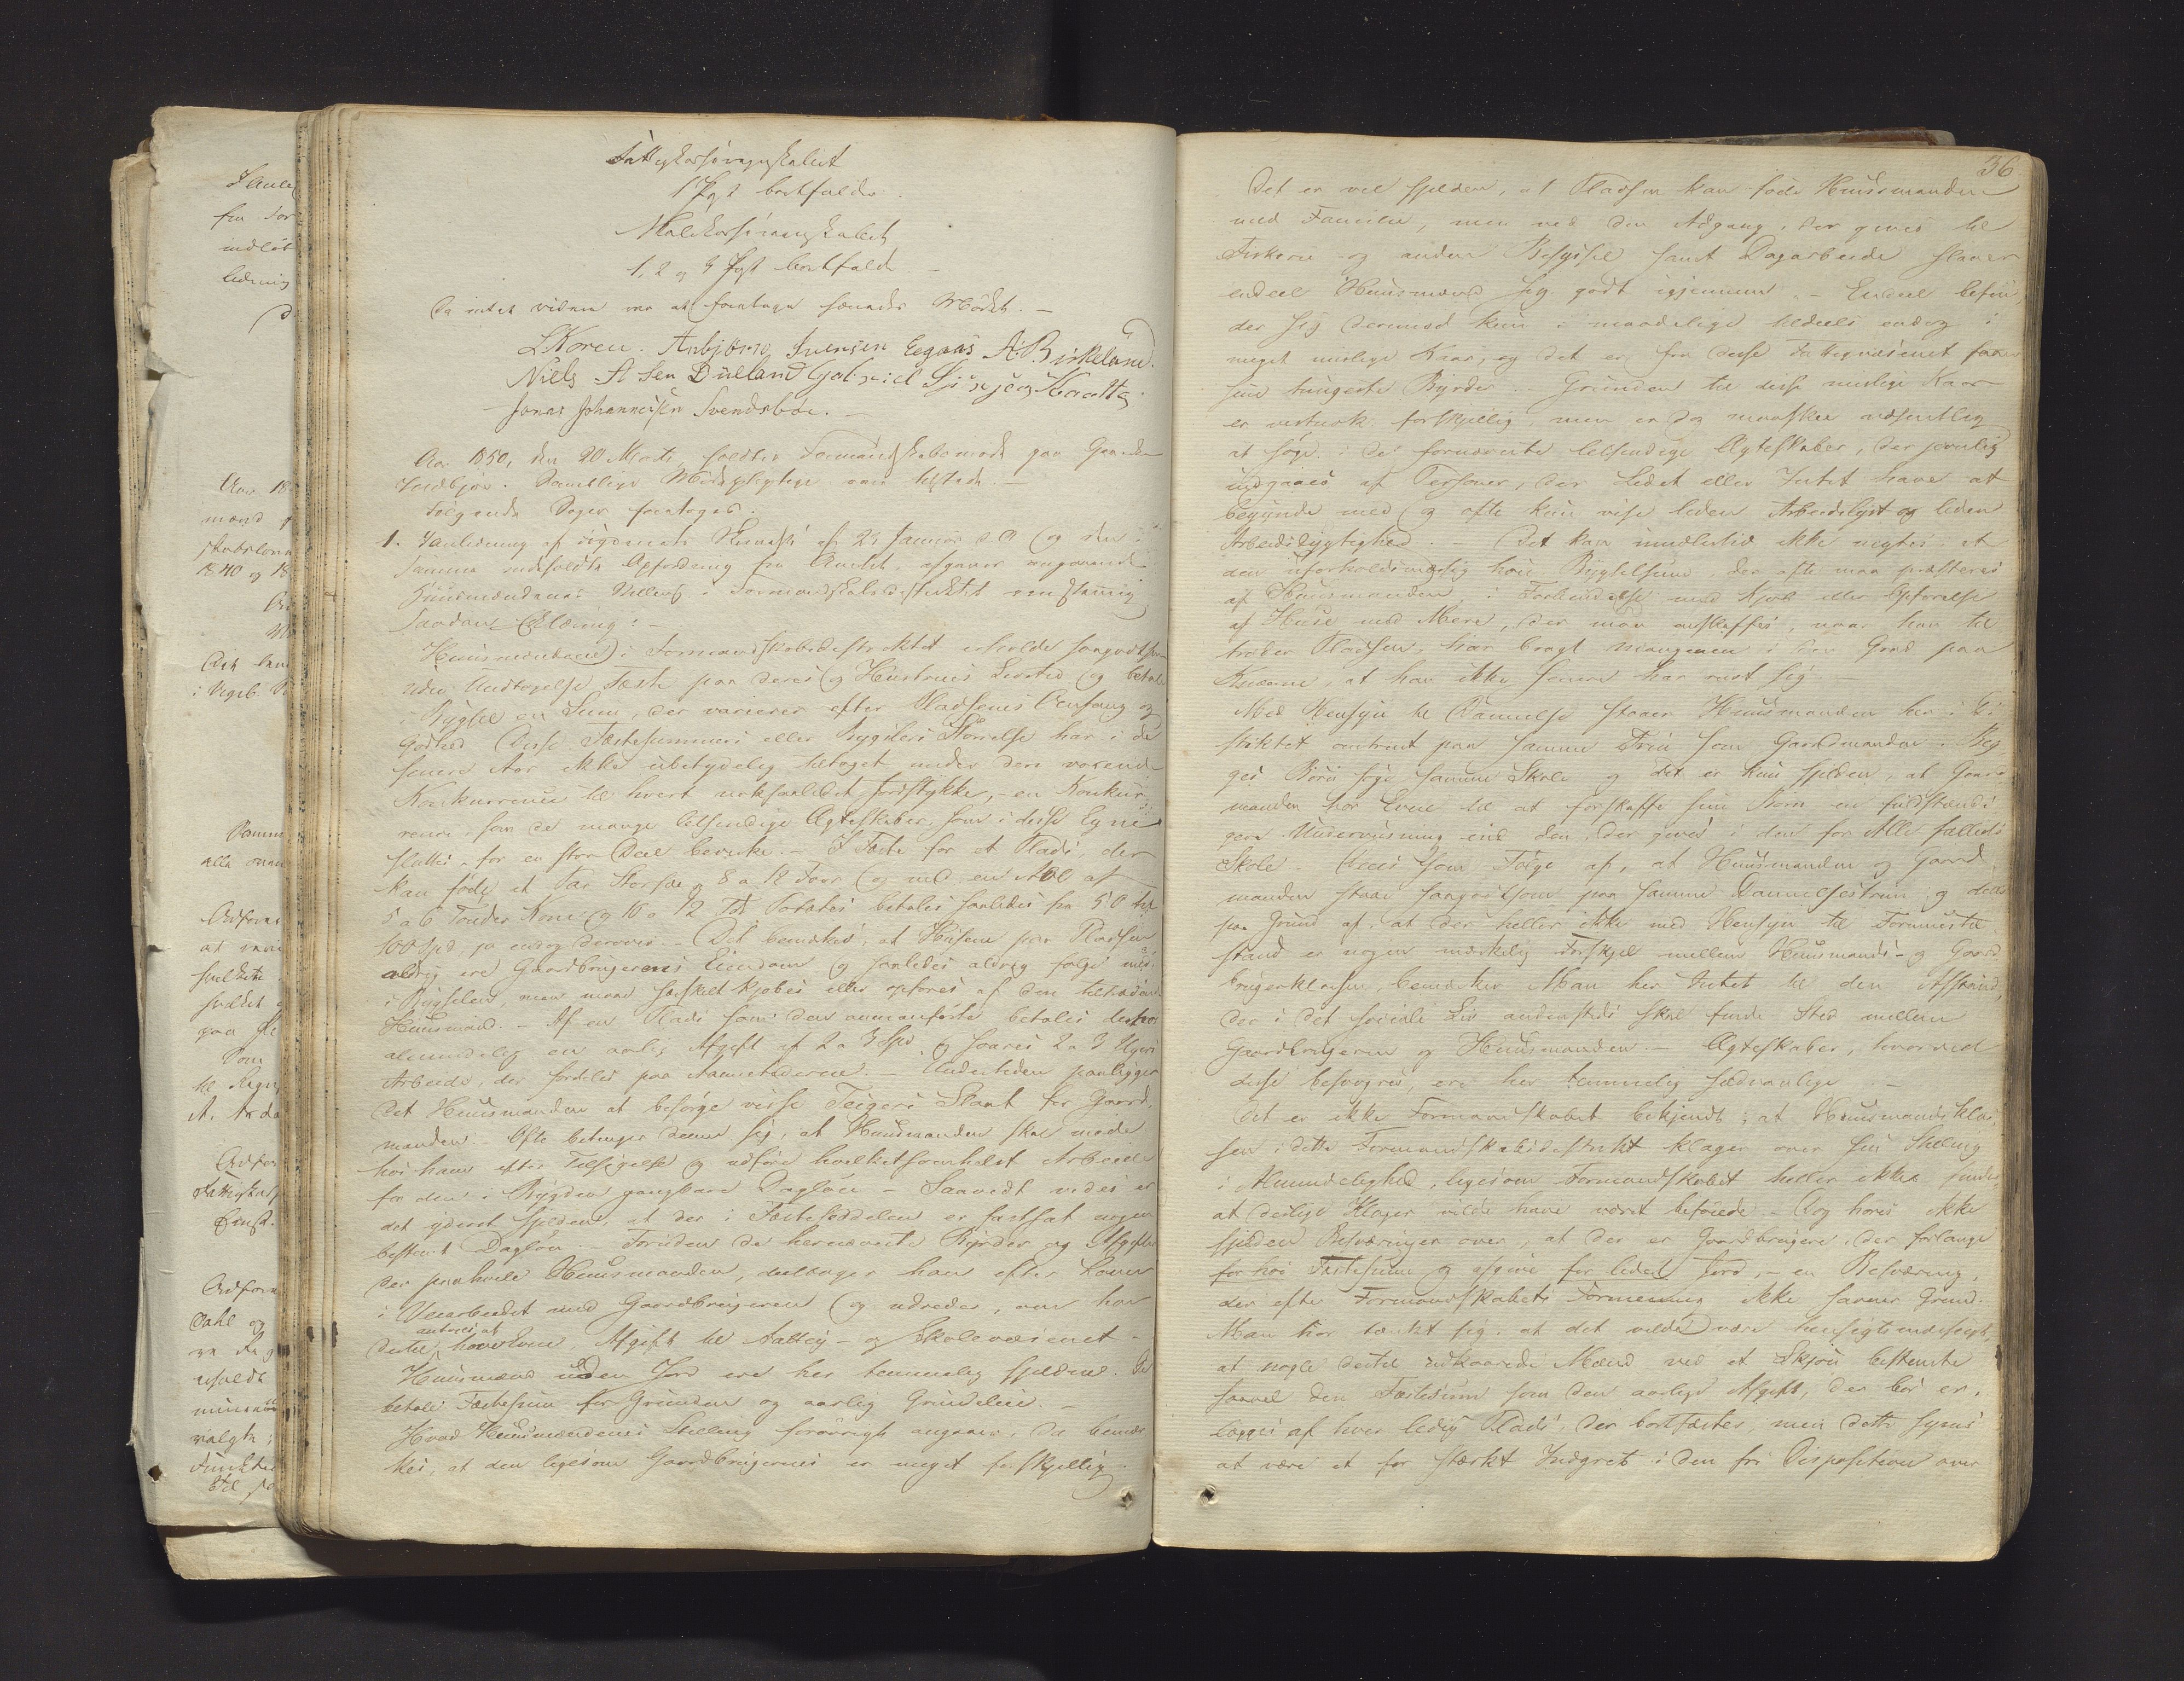 Fattigkassaregnskabet
1 Pgt bortfalder
Skolekasseregnskabet
1, 2 og 3 Pgt bortfald
Da intet videre var at foretage hævedes Mødet. –
L Koren. Anbjörn Svensen Eegaas A. Birkeland.
Niels A Sen Dueland Gabriel
Jonas Johannesen Svendsboe. –
Aar 1850, den 20 Marts holdtes Formandskabsmøde paa Gaarden
Samtlige Mødepligtige vare tilstede. –
Følgende Sager foretoges:
1. I Anledning af af 21 Januar d. A. og den i
samme indholdte Opfordring fra Amtet, afgaves angaaende
Huusmændenes Stilling i Formandskabsdistriktet eenstemmig
saadan Erklæring: –
Huusmændene i Formandskabsdistriktet erholde saagodtsom
uden Undtagelse Fæste paa deres og Hustrues Levetid og betale
i Bygsel en Sum, der varierer efter Pladsens Omfang og
Godhed. Disse Fæstesummers eller Bygslers Størrelse har i de
senere Aar ikke ubetydelig tiltaget under den voxende
Konkurrence til hvert udstykke, – en Konkur-
rence, som de mange letsindige Ægteskaber, som i disse Egne
sluttes, for en stor Deel bevirke. – I Fæste for et Plads, der
kan føde et Par Storfæ og 8 a 12 Faar og med en Avl af
5 a 6 Tønder Korn og 10 a 12 Tdr Potetes betales saaledes fra 50 til
100 Spd, ja endog derover. – Det bemærkes, at Husene paa Pladsen
aldrig ere Gaardbrugerens Eiendom og saaledes aldrig følge med
i Bygselen, men maae særskilt kjøbes eller opføres af den tiltrædende
Huusmand. – Af en Plads som den ovenanførte betales desuden
almindelig en aarlig Afgift af 2 a 3 Spd og haves 2 a 3 Ugers
Arbeide, der fordeles paa Aarstiderne. – Undertiden paaligger
det Huusmanden at besørge visse Teigers Slaat for Gaard-
manden. – Ofte betinger denne sig, at Huusmanden skal møde
hos ham efter Tilsigelse og udføre hvilketsomhelst Arbeide
for den i Bygden gangbare Dagløn. – Saavidt vides er
det yderst sjeldent, at der i Fæsteseddelen er fastsat nogen
bestemt Dagløn. – Foruden de hernævnte Byrder og Afgifter
der paahvile Huusmanden, deeltager han efter Loven
i Veiarbeidet med Gaardbrugeren og udreder, om han
antages at
dertil have Evne, Afgift til Fattig- og Skolevæsenet. –
Huusmænd uden Jord ere her temmelig sjeldne. De
betale Fæstesum for Grunden og aarlig Grundleie. –
Hvad Huusmændenes Stilling forøvrigt angaaer, da bemær-
kes, at den ligesom Gaardbrugernes er meget forskjellig.
36
Det er vel sjelden, at Pladsen kan føde Huusmanden
med Familie, men ved den Adgang, der gives til
Fiskerie og anden Bisyssel samt Dagarbeide slaaer
endeel Huusmænd sig godt igjennem. – Endeel befin-
der sig derimod kun i maadelige tildeels endog i
meget mislige Kaar, og det er fra disse Fattigvæsenet faaer
sine tungeste Byrder. – Grunden til disse mislige Kaar
er vistnok forskjellig, men er dog maaskee væsentlig
at søge i de fornævnte letsindige Ægteskaber, der jævnlig
indgaaes af Personer, der Lidet eller Intet have at
begynde med og ofte kun vise liden Arbeidslyst og liden
Arbeidsdygtighed. – Det kan imidlertid ikke negtes, at
den uforholdsmæsig høie Bygselsum, der ofte maa præsteres
af Huusmanden, i Forbindelse med Kjøb eller Opførelse
af Huse med Mere, der maa anskaffes, naar han til-
træder Pladsen, har bragt mangeen i den Grad paa
Knæerne, at han ikke senere har reist sig. –
Med Hensyn til Dannelse staaer Huusmanden her i Di-
striktet omtrent paa samme Trin som Gaardmanden. Beg-
ges Børn søge samme Skole og det er kun sjelden, at Gaard-
manden har Evne til at forskaffe sine Børn en fuldstændi-
gere Underviisning end den, der gives i den for Alle fælleds
Skole. Deels som Følge af, at Huusmanden og Gaard-
manden staae saagodtsom paa samme Dannelsestrin og deels
paa Grund af at der heller ikke med Hensyn til Formuestil-
stand er nogen mærkelig Forskjel mellem Huusmands- og Gaard-
brugerklassen, bemærker Man her Intet til den Afstand,
der i det sociale Liv andensteds skal finde Sted mellem
Gaardbrugeren og Huusmanden – Ægteskaber, hvorved
disse besvogres, ere her temmelig sædvanlige. –
Det er ikke Formandskabet bekjendt, at Huusmandsklas-
sen i dette Formandskabsdistrikt klager over sin Stilling
i Almindelighed, ligesom Formandskabet heller ikke finder
at deslige Klager vilde have været beføiede. – Dog høres ikke
sjelden Besværinger over, at der er Gaardbrugere, der forlange
for høi Fæstesum og Afgivt for lidet Jord, – en Besværing,
der efter Formandskabets Formening ikke savner Grund.
Man har tænkt sig, at det vilde være hensigtsmæssigt,
at nogle dertil udkaarede Mænd ved et Skjøn bestemte
saavel den Fæstesum som den aarlige Afgift, der bør er-
lægges af hver ledig Plads, der bortfæstes, men dette synes
at være et for stærkt Indgreb i den fri Disposition over